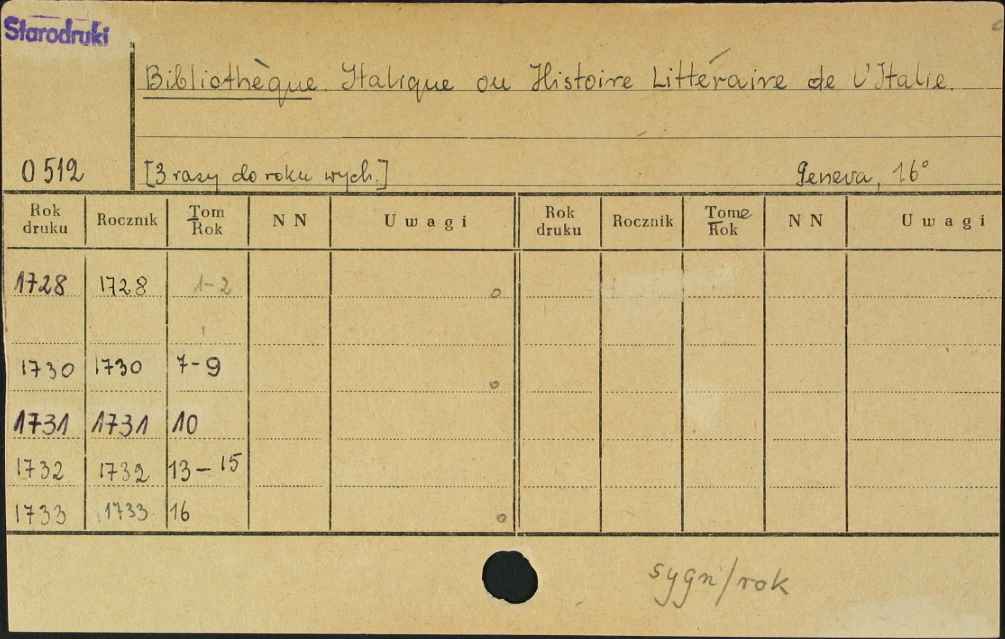 Starodruki
Bibliothèque Italique ou Histoire Littéraire de l'Italie.
0512 [3 razy do roku wych.] Geneva, 16°
Rok druku Rocznik Tom Rok NN Uwagi Rok druku Rocznik Tome Rok NN Uwagi
1728 1728 1-2
1730 1730 7-9
1731 1731 10
1732 1732 13-15
1733 1733 16
sygn/rok